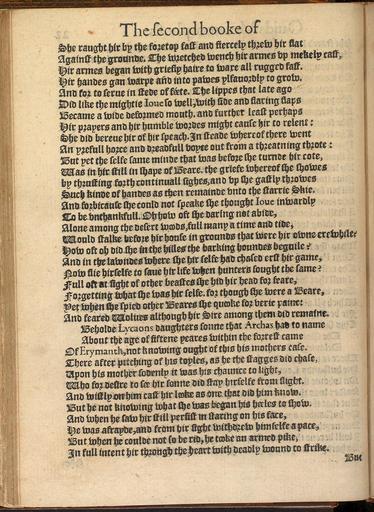 The second booke of
She raught hir by the foretop fast and fiercely threw hir flat
Against the grounde. The wretched wench hir armes vp mekely cast,
Hir armes began with griesly haire to waxe all rugged fast.
Hir handes gan warpe and into pawes ylfauordly to grow.
And for to serue in stede of feete. The lippes that late ago
Did like the mightie Ioue so well, with side and flaring flaps
Became a wide deformed mouth. and further least perhaps
Hir prayers and hir humble wordes might cause hir to relent:
She did bereue hir of hir speach. In steade wherof there went
An yrefull horce and dreadfull voyce out from a threatning throte:
But yet the selfe same minde that was before she turnde hir cote,
Was in hir still in shape of Beare. the griefe wherof she showes
by thrusting forth continuall sighes, and vp she gastly throwes
Such kinde of handes as then remainde vnto the starrie Skie.
And forbicause she could not speake she thought Ioue inwardly
To be vnthankfull. Oh how oft she daring not abide,
Alone among the desert woods, full many a time and tide,
Would stalke before hir house in grounds that were hir owne erewhile?
How oft oh did she in the hilles the barking houndes beguile?
And in the lawndes where she hir selfe had chased erst hir game,
Now flie hirselfe to saue hir life when hunters sought the same?
Full oft at sight of other beastes she hid hir head for feare,
Forgetting what she was hir selfe. for though she were a Beare,
Yet when she spied other Beares she quooke for verie paine:
And feared Wolues although hir Sire among them did remaine.
Beholde Lycaons daughters sonne that Archas had to name
About the age of fiftene yeares within the forrest came
Of Erymanth, not knowing ought of this his mothers case.
There after pitching of his toyles, as he the stagges did chase,
Upon his mother sodenly it was his chaunce to light,
Who for desire to see hir sonne did stay hirselfe from flight.
And wistly on him cast hir looke as one that did him know.
But he not knowing what she was began his heeles to show.
And when he saw hir still persist in staring on his face,
He was afrayde, and from hir sight withdrew himselfe a pace,
But when he coulde not so be rid, he tooke an armed pike,
In full intent hir through the heart with deadly wound to strike.
But